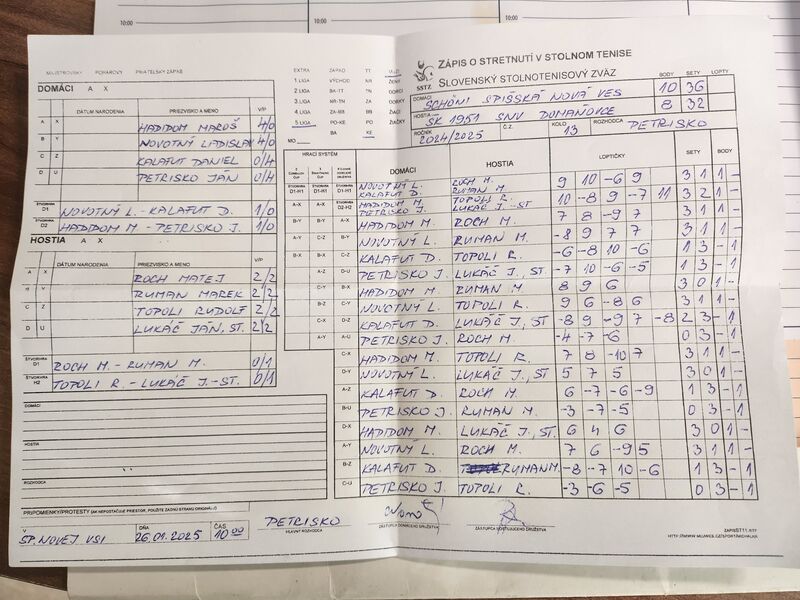 10:00
10:00
10:00
MAJSTROVSKÝ POHÁROVÝ PRIATEĽSKÝ ZÁPAS
DOMÁCI A X
DÁTUM NARODENIA PRIEZVISKO A MENO V/P
A X HADIDOM MAROŠ 4/0
B Y NOVOTNÝ LADISLAV 4/0
C Z KALAFUT DANIEL 0/4
D U PETRISKO JÁN 0/4
ŠTVORHRA D1 NOVOTNÝ L. - KALAFUT D. 1/0
ŠTVORHRA D2 HADIDOM M - PETRISKO J. 1/0
HOSTIA A X
DÁTUM NARODENIA PRIEZVISKO A MENO V/P
A X ROCH MATEJ 2/2
B Y RUMAN MAREK 2/2
C Z TOPOLI RUDOLF 2/2
D U LUKÁČ JÁN, ST. 2/2
ŠTVORHRA ROCH M. - RUMAN M. 0/1
ŠTVORHRA H2 TOPOLI R - LUKÁČ J.-ST. 0/1
DOMÁCI
HOSTIA
ROZHODCA
PRIPOMIENKY/PROTESTY (AK NEPOSTAČUJE PRIESTOR, POUŽITE ZADNÚ STRANU ORIGINÁLU)
V SP. NOVEJ VSI DŇA 26.01.2025 ČAS 10 00
PETRISKO
HLAVNÝ ROZHODCA
EXTRA ZÁPAD TT MUŽI
1 LIGA VÝCHOD NR ŽENY
2 LIGA BA-TT TN DORCI
3 LIGA NR-TN ZA DORKY
4 LIGA ZA-BB BB ŽIACI
5 LIGA PO-KE PO ŽIAČKY
BA KE
SSTZ
ZÁPIS O STRETNUTÍ V STOLNOM TENISE
SLOVENSKÝ STOLNOTENISOVÝ ZVÄZ
BODY SETY LOPTY
DOMÁCI SCHÖNI SPIŠSKÁ NOVÁ VES 10 36
HOSTIA ŠK 1951 SNV DOMAŇOVCE 8 32
ROČNÍK 2024/2025 Č.Z. KOLO 13 ROZHODCA PETRISKO
HRACÍ SYSTÉM DOMÁCI HOSTIA LOPTIČKY SETY BODY
NOVOTNÝ L. KALAFUT D. ROCH M. RUMAN M. 9 10 -6 9 3 1 1 -
HADIDOM M. PETRISKO J. TOPOLI R. LUKÁČ J.-ST 10 -8 9 -7 11 3 2 1 -
HADIDOM M. ROCH M. 7 8 -9 7 3 1 1 -
NOVOTNÝ L. RUMAN M. -8 9 7 7 3 1 1 -
KALAFUT D. TOPOLI R. -6 -8 10 -6 1 3 - 1
PETRISKO J. LUKÁČ J., ST -7 10 -6 -5 1 3 - 1
HADIDOM M. RUMAN M. 8 9 6 3 0 1 -
NOVOTNÝ L. TOPOLI R. 9 6 -8 6 3 1 1 -
KALAFUT D. LUKÁČ J., ST -8 9 -9 7 -8 2 3 - 1
PETRISKO J. ROCH M. -4 -7 -6 0 3 - 1
HADIDOM M. TOPOLI R. 7 8 -10 7 3 1 1 -
NOVOTNÝ L. LUKÁČ J., ST 5 7 5 3 0 1 -
A-Z KALAFUT D. ROCH M. 6 -7 -6 -9 1 3 - 1
B-U PETRISKO J. RUMAN M. -3 -7 -5 0 3 - 1
D-X HADIDOM M. LUKÁČ J., ST. 6 4 6 3 0 1 -
A-Y NOVOTNÝ L. ROCH M. 7 6 -9 5 3 1 1 -
B-Z KALAFUT D. RUMAN M -8 -7 10 -6 1 3 - 1
C-U PETRISKO J. TOPOLI R. -3 -6 -5 0 3 - 1
ZÁSTUPCA DOMÁCEHO DRUŽSTVA ZÁSTUPCA HOSŤUJÚCEHO DRUŽSTVA
ZAPISST11.RTF